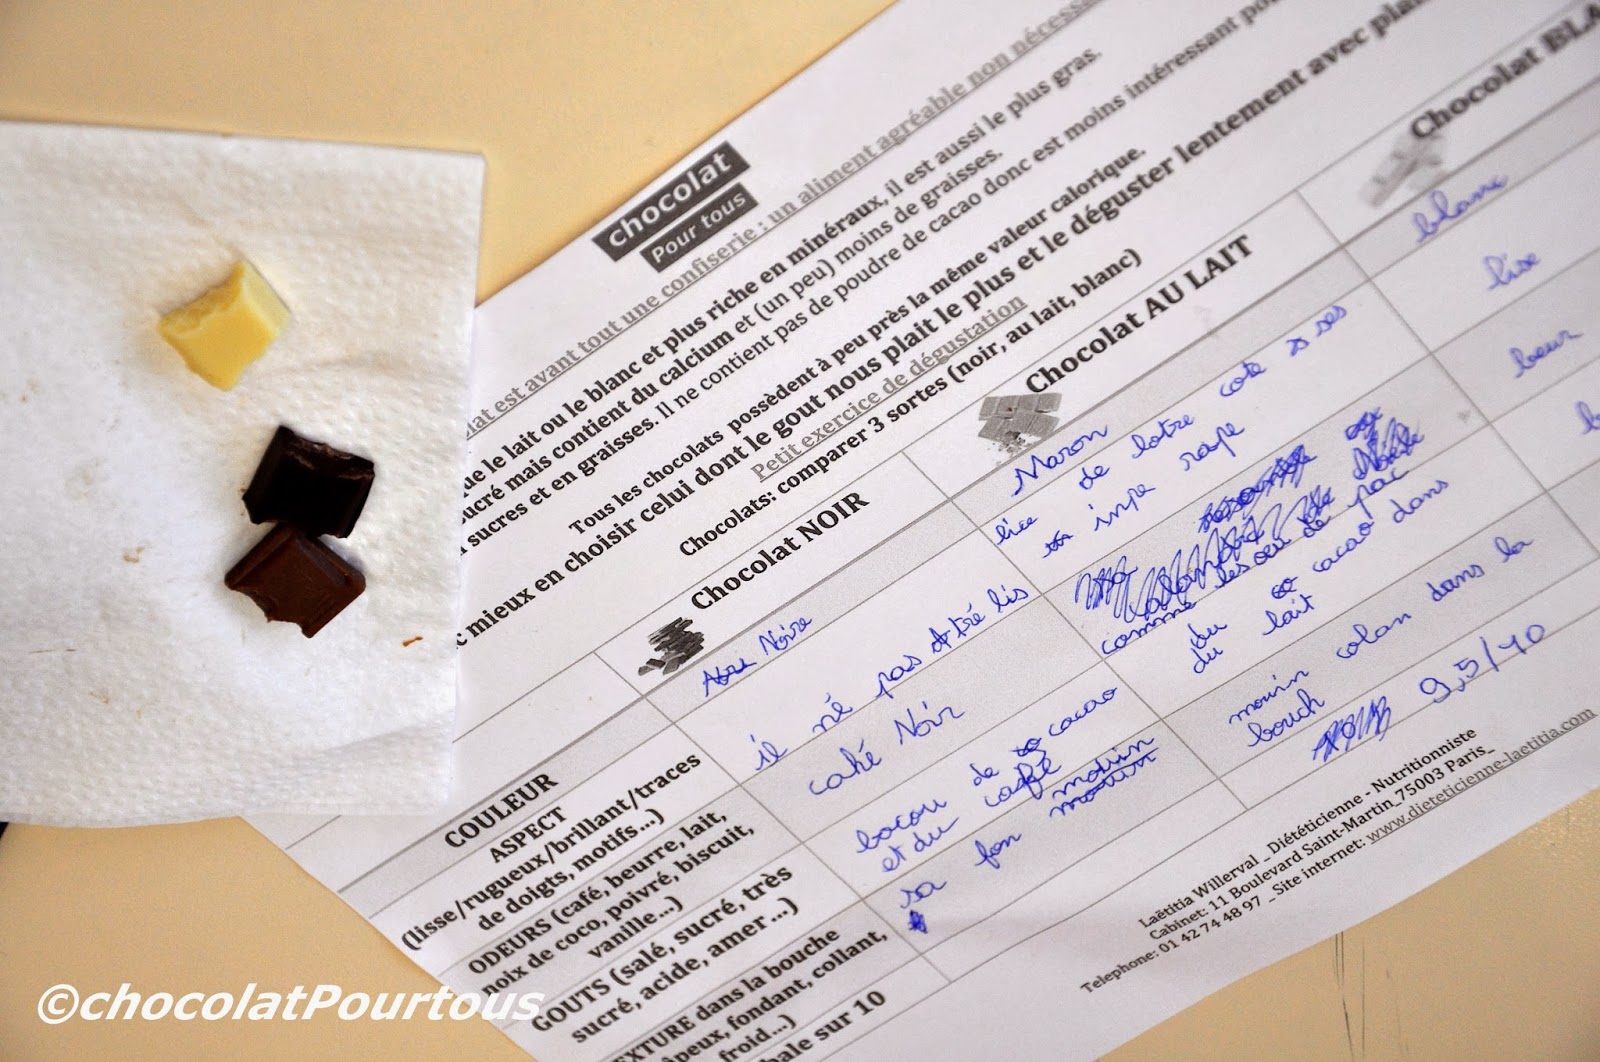 chocolat
Pour tous
lat est avant tout une confiserie : un aliment agréable non nécessa
que le lait ou le blanc et plus riche en minéraux, il est aussi le plus gras.
sucré mais contient du calcium et (un peu) moins de graisses.
sucres et en graisses. Il ne contient pas de poudre de cacao donc est moins intéressant pou
Tous les chocolats possèdent à peu près la même valeur calorique.
c mieux en choisir celui dont le gout nous plait le plus et le déguster lentement avec plai
Petit exercice de dégustation
Chocolats: comparer 3 sortes (noir, au lait, blanc)
Chocolat NOIR
Chocolat AU LAIT
Chocolat BLA
COULEUR
Noire
Maron
blanc
ASPECT
(lisse/rugueux/brillant/traces
de doigts, motifs...)
il né pas tré lis
lice de lotre coté
rape
lise
ODEURS (café, beurre, lait,
noix de coco, poivré, biscuit,
vanille...)
café Noir
comme les
beur
GOUTS (salé, sucré, très
sucré, acide, amer ...)
bocou de cacao
et du café
du cacao dans
du lait
EXTURE dans la bouche
âpeux, fondant, collant,
froid...)
sa fon
mouin colan dans la
bouch
bale sur 10
9,5/10
Laëtitia Willerval _ Diététicienne - Nutritionniste
Cabinet: 11 Boulevard Saint-Martin_75003 Paris_
Telephone: 01 42 74 48 97 _ Site internet: www.dieteticienne-laetitia.com
©chocolatPourtous